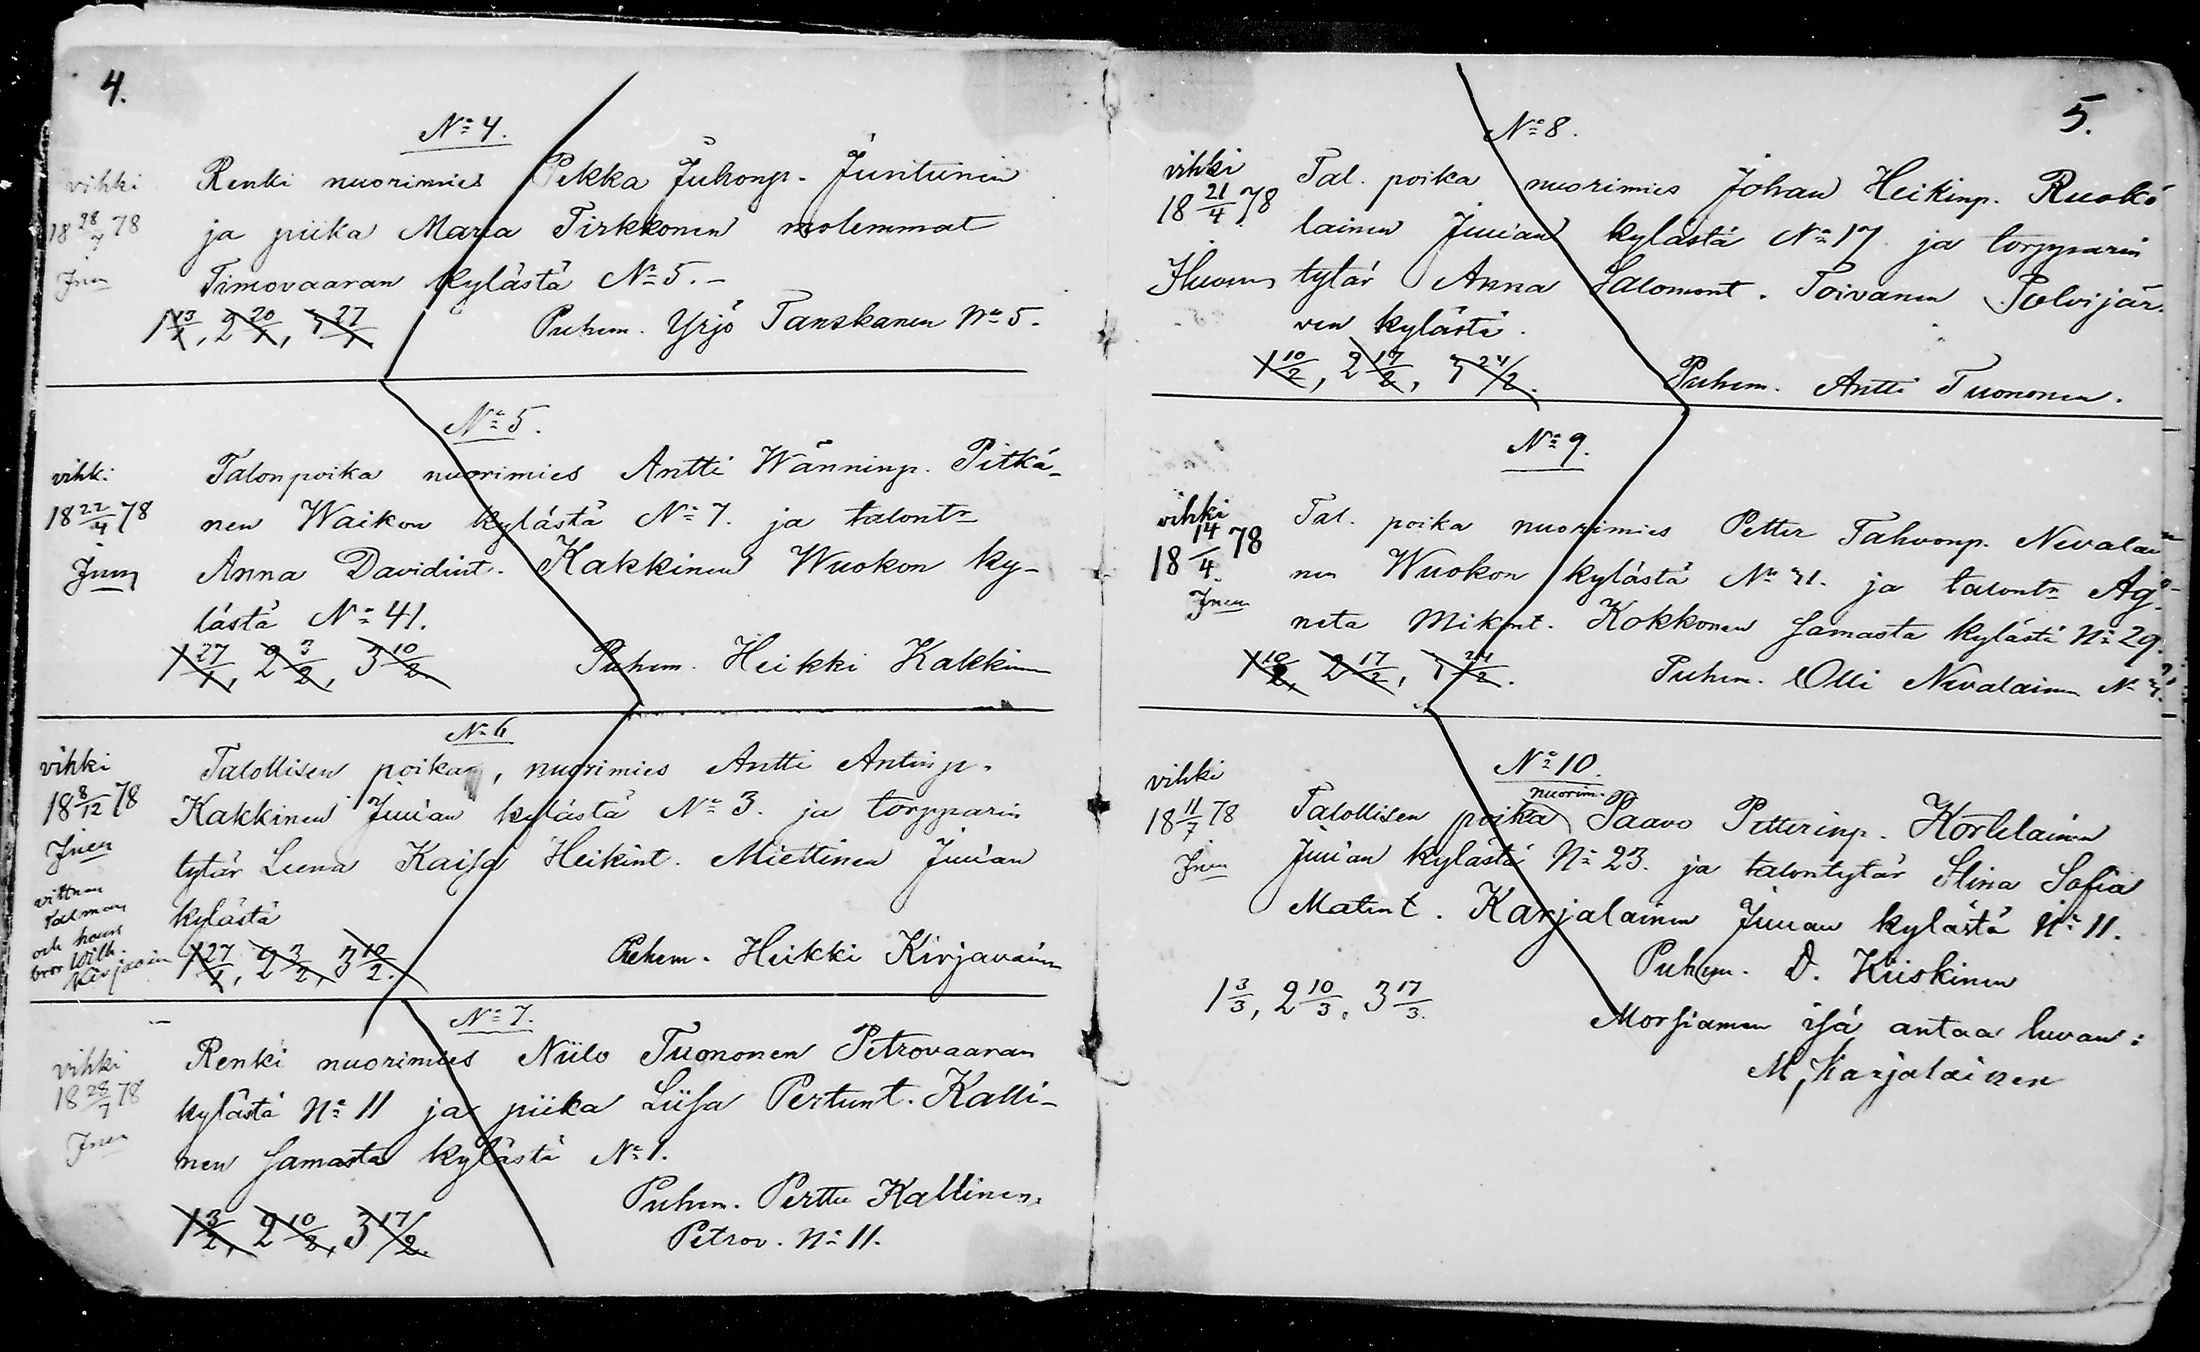 4.
No 4.
vihki
18 28/7 78
Jnen
Renki nuorimies Pekka Juhonp. Juntunen
ja piika Maria Tirkkonen molemmat
Timovaaran kylästä No 5.-
1 13/1, 2 20/1, 3 27/1
Puhem. Yrjö Tanskanen No 5.
No 5.
vihki
18 22/4 78
Jnen
Talonpoika nuorimies Antti Wänninp. Pitkä-
nen Waikon kylästä No 7. ja talontr
Anna Davidint. Kakkinen Wuokon ky-
lästä No 41.
1 27/1, 2 3/2, 3 10/2
Puhem. Heikki Kakkinen
No 6
vihki
18 8/12 78
Jnen
vittnen
talman
och hans
bror Wilh.
Kirjavain
Talollisen poika, nuorimies Antti Antinp.
Kakkinen Juuan kylästä No 3. ja torpparin
tytär Leena Kaisa Heikint. Miettinen Juuan
kylästä
1 27/1, 2 3/2, 3 10/2.
Puhem. Heikki Kirjavainen
No 7.
vihki
18 28/7 78
Jnen
Renki nuorimies Niilo Tuononen Petrovaaran
kylästä No 11 ja piika Liisa Pertunt. Kalli-
nen samasta kylästä No 1.
1 3/2, 2 10/2, 3 17/2.
Puhem. Perttu Kallinen,
Petrov. No 11.
5.
No 8.
vihki
18 21/4 78
Tal. poika nuorimies Johan Heikinp. Ruoko
lainen Juuan kylästä No 17 ja torpparin
tytär Anna Salomont. Toivanen Polvijär-
ven kylästä.
1 10/2, 2 17/2, 3 24/2.
Puhem. Antti Tuononen.
No 9.
vihki
18 14/4 78
Jnen
Tal. poika nuorimies Petter Tahvonp. Nevalai
nen Wuokon kylästä No 31. ja talontr Ag-
neta Mikint. Kokkonen samasta kylästä No 29.
1 10/2, 2 17/2, 3 24/2.
Puhem. Olli Nevalainen No 31.
No 10.
vihki
18 11/7 78
Jnen
nuorim.
Talollisen poika Paavo Petterinp. Kortelainen
Juuan kylästä No 23. ja talontytär Stina Sofia
Matint. Karjalainen Juuan kylästä No 11.
Puhem. D. Kiiskinen
1 3/3, 2 10/3, 3 17/3.
Morsiamen isä antaa luvan:
M, Karjalainen